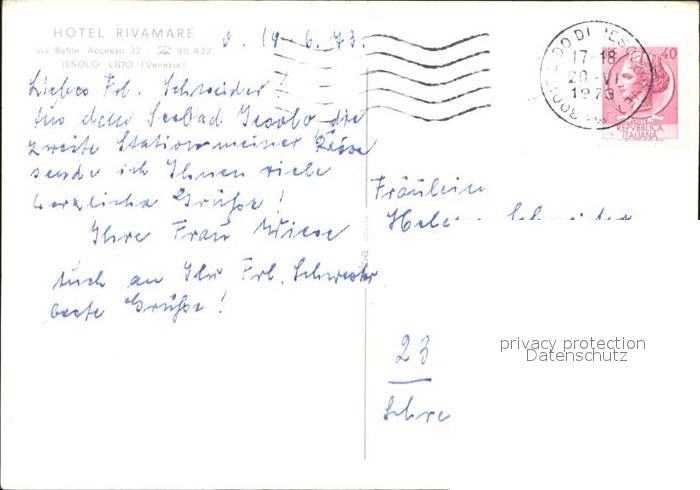 HOTEL RIVAMARE
Via Bafile, Accesso 32 ☎ 90 432
JESOLO LIDO (Venezia)
d. 19.6.73.
Liebes Frl. Schneider!
Aus dem Seebad Jesolo die
zweite Station meiner Reise
sende ich Ihnen viele
herzliche Grüße!
Ihre Frau Wiese
Auch an Ihr Frl. Schwester
beste Grüße!
Fräulein
23
LIDO DI JESOLO
17-18
20 VI
1973
40
REPVBBLICA
ITALIANA
privacy protection
Datenschutz